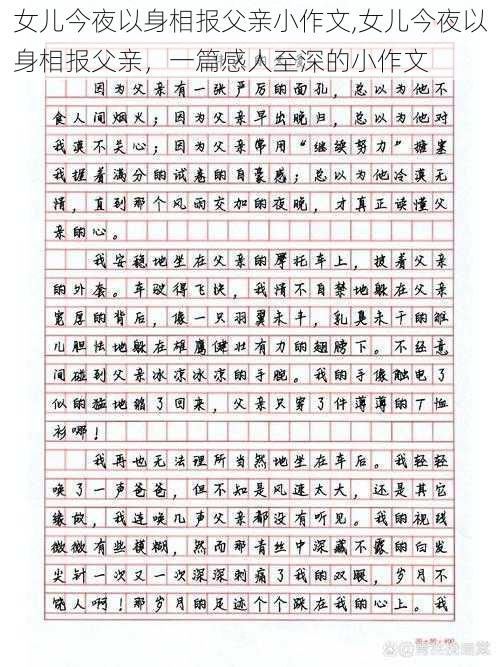 女儿今夜以身相报父亲小作文,女儿今夜以
身相报父亲，一篇感人至深的小作文
因为父亲有一张严厉的面孔，总以为他不
食人间烟火；因为父亲早出晚归，总以为他对
我漠不关心；因为父亲常用“继续努力”搪塞
我握着满分的试卷的自豪感；总以为他冷漠无
情，直到那个风雨交加的夜晚，才真正读懂父
亲的心。
我安稳地坐在父亲的摩托车上，披着父亲
的外套。车驶得飞快，我情不自禁地躲在父亲
宽厚的背后，像一只羽翼未丰，乳臭未干的雏
儿胆怯地躲在雄鹰健壮有力的翅膀下。不经意
间碰到父亲冰凉冰凉的手腕。我的手像触电了
似的猛地缩了回来，父亲只穿了件薄薄的T恤
衫哪！
我再也无法理所当然地坐在车后。我轻轻
唤了一声爸爸，但不知是风速太大，还是其它
缘故，我连唤几声父亲都没有听见。我的视线
微微有些模糊，然而那青丝中深藏不露的白发
尖针一次又一次深深刺痛了我的双眼，岁月不
饶人啊！那岁月的足迹个个踩在我的心上。我